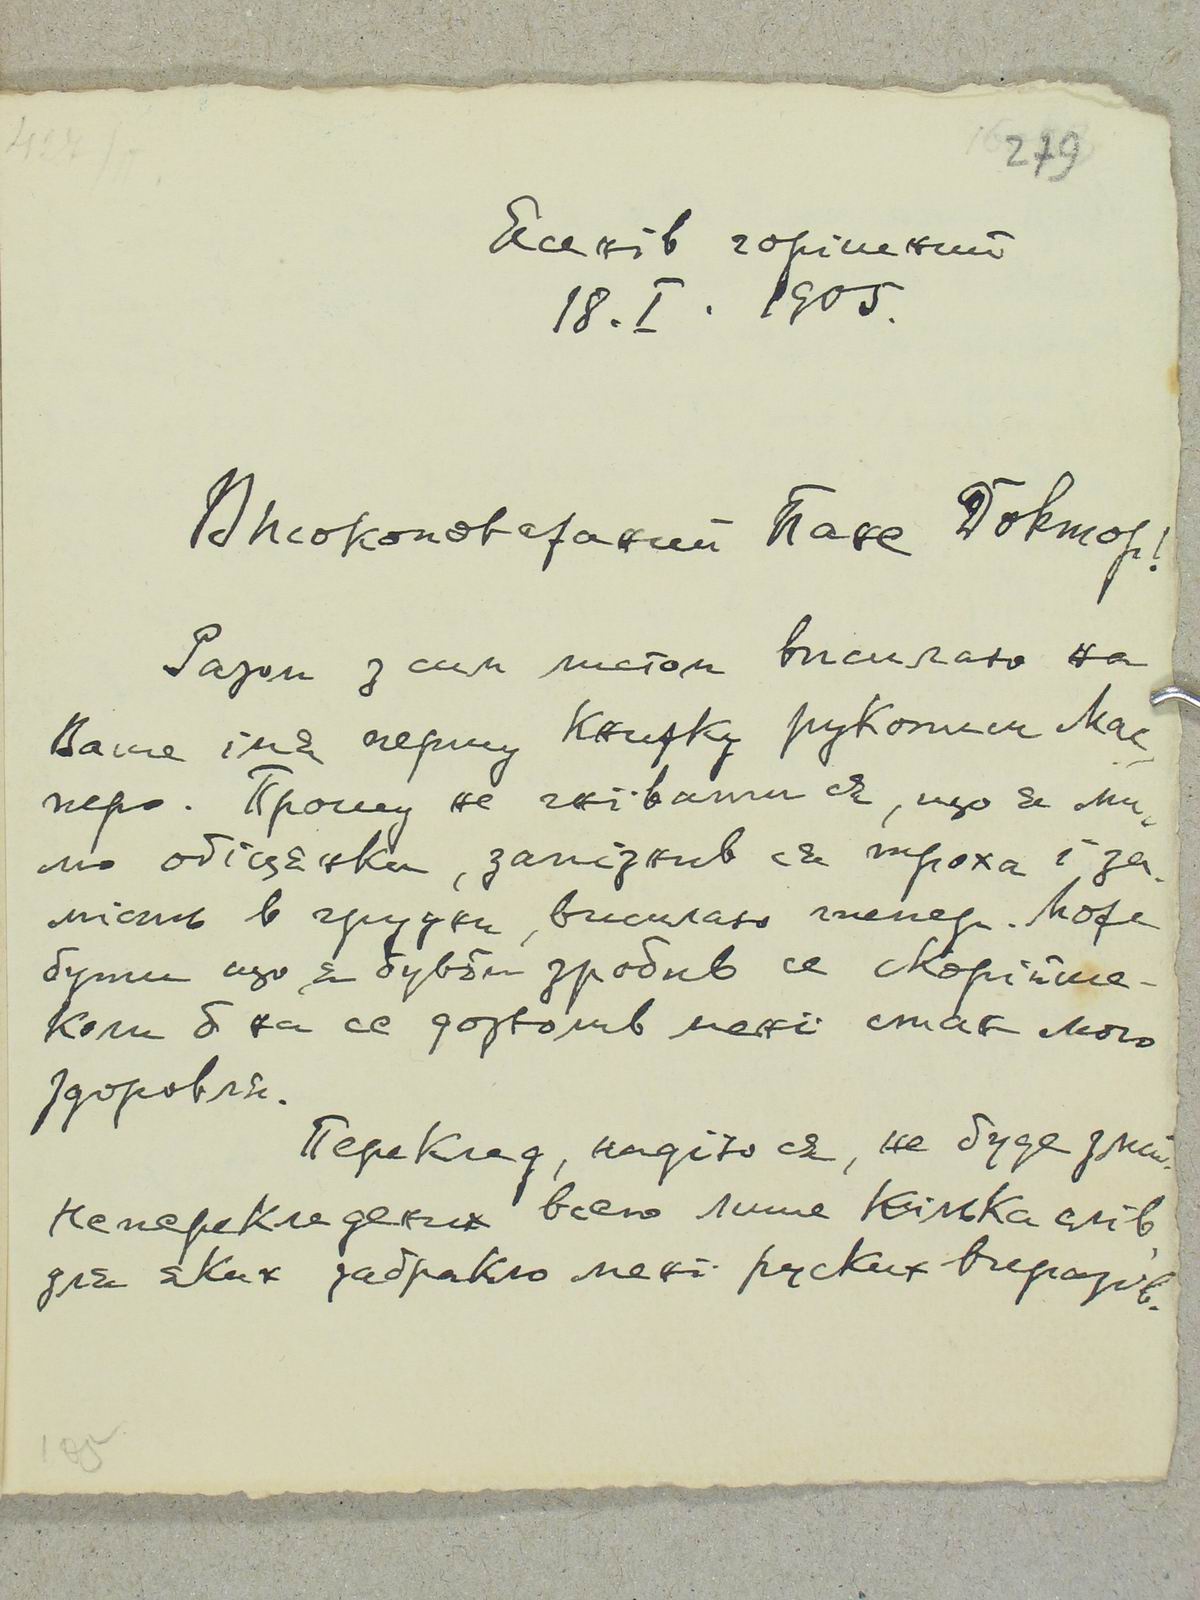 279
Ясенів горішний
18. I. 1905.
Високоповажаний Пане Доктор!
Разом з сим листом висилаю на
Ваше імя першу книжку рукописи Мас-
перо. Прошу не гнівати ся, що я ми-
мо обіцянки, запізнив ся троха і за-
мість в грудни, висилаю тепер. Може
бути що я бувби зробив се скорійше -
коли б на се дозволив мені стан мого
здоровля.
Переклад, надію ся, не буде злий.
Неперекладених всего лише кілька слів,
для яких забракло мені руских виразів.